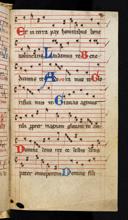 Et in terra pax hominibus bone
voluntatis Laudamus te Bene
dicimus te Adora mus te Glo
rifica mus te Gracias agimus
tibi propter magnam gloriam tu am
Domine deus rex ce lestis deus
pater omnipotens Domine fili